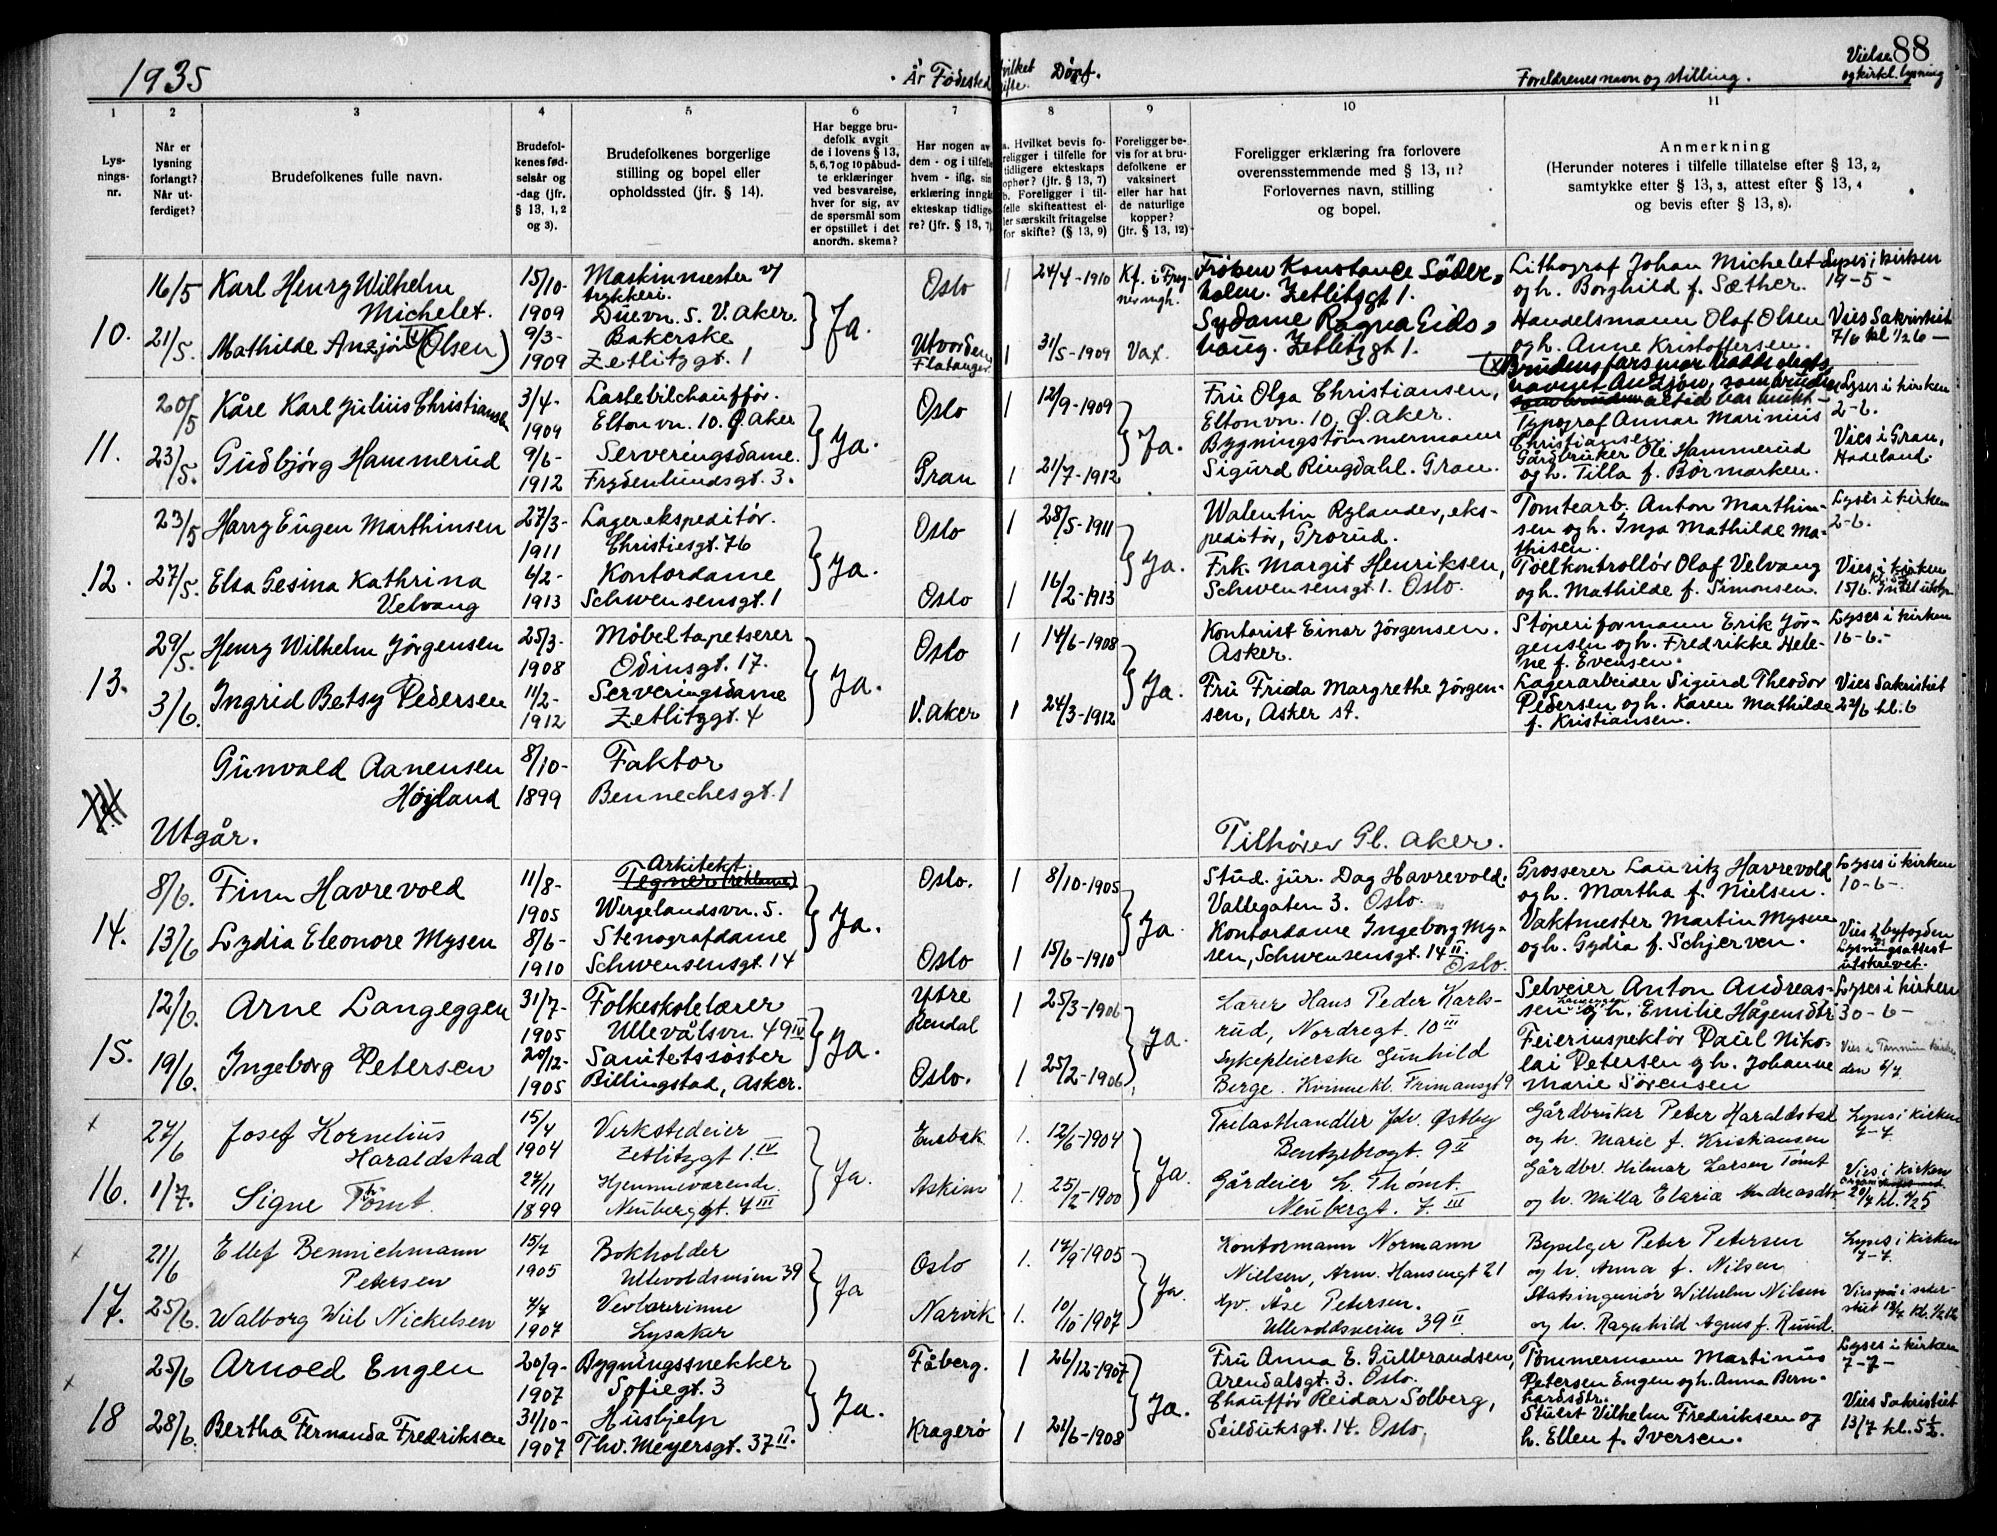 1935
År Fødested
hvilket
ifte.
Døpt.
Foreldrenes navn og stilling.
Vielse
og kirkl. lysning
88
1
2
3
4
5
6
7
8
9
10
11
Lys-
nings-
nr.
Når er
lysning
forlangt?
Når ut-
ferdiget?
Brudefolkenes fulle navn.
Brudefol-
kenes fød-
selsår og
-dag (jfr.
§ 13, 1, 2
og 3).
Brudefolkenes borgerlige
stilling og bopel eller
opholdssted (jfr. § 14).
Har begge bru-
defolk avgit
de i lovens § 13,
5, 6, 7 og 10 påbud-
te erklæringer
ved besvarelse,
hver for sig, av
de spørsmål som
er opstillet i det
anordn. skema?
Har nogen av
dem - og i tilfelle
hvem - iflg. sin
erklæring inngå
ekteskap tidlige-
re? (jfr. § 13, 7)
a. Hvilket bevis fo-
religger i tilfelle for
tidligere ekteskaps
ophør? (jfr. § 13, 7)
b. Foreligger i til-
felle skifteattest el-
ler særskilt fritagelse
for skifte? (§ 13, 9)
Foreligger be-
vis for at bru-
defolkene er
vaksinert
eller har hat
de naturlige
kopper?
(jfr. § 13, 12)
Foreligger erklæring fra forlovere
overensstemmende med § 13, 11?
Forlovernes navn, stilling
og bopel.
Anmerkning
(Herunder noteres i tilfelle tillatelse efter § 13, 2,
samtykke efter § 13, 3, attest efter § 13, 4
og bevis efter § 13, 8).
10.
16/5
21/5.
Karl Henry Wilhelm
Michelet.
Mathilde Anzjøn (Olsen)
15/10-
1909
9/3-
1909
Maskinmester v/
trykkeri.
Duevn. 5. V. Aker.
Bakerske
Zetlitzgt. 1
Ja.
Oslo
Utvorden
Flatanger
1 24/4-1910
1 31/5-1909
Kf. i Frog-
nermgh.
Vax.
Frøken Konstance Söder-
holm. Zetlitzgt 1.
Sydame Ragna Eids-
haug. Zetlitzgt 1.
Lithograf Johan Michelet
og h. Borghild f. Sæther.
Handelsmann Olaf Olsen
og h. Anne Kristoffersen.
(x Brudens farsmor hadde slegts-
navnet Anzjøn, som bruden
altid har brukt -
Lyses i kirken
19-5-
Vies Sakristiet
7/6 kl 1/2 6 -
11.
20/5
23/5.
Kåre Karl Julius Christiansen
Gudbjørg Hammerud
3/4-
1909
9/6-
1912
Lastebilchauffør.
Eltonvn. 10. Ø. Aker
Serveringsdame.
Frydenlundsgt. 3.
Ja.
Oslo
Gran
12/9-1909
1 21/7-1912
Ja.
Fru Olga Christiansen,
Eltonvn. 10, Ø. Aker.
Bygningstømmermann
Sigurd Ringdahl. Gran.
Typograf Annar Marinius
Christiansen.
Gårdbruker Ole Hammerud
og h. Tilla f. Børmarken.
Lyses i kirken
2-6.
Vies i Gran,
Hadeland.
12.
23/5
27/5.
Harry Eugen Marthinsen
Elsa Gesina Kathrina
Velvang
27/3-
1911
6/2-
1913
Lagerekspeditør.
Christiesgt. 76
Kontordame
Schwensensgt. 1
Ja.
Oslo
Oslo
1 28/5-1911
1 16/2-1913
Ja.
Walentin Rylander, eks-
peditør, Grorud.
Frk. Margit Henriksen,
Schwensensgt. 1. Oslo.
Tomtearb. Anton Marthin-
sen og h. Inga Mathilde Ma-
thisen.
Tollkontrollør Olaf Velvang
og h. Mathilde f. Simonsen.
Lyses i kirken
2-6.
Vies i kirken
15/6.
13.
29/5.
3/6.
Henry Wilhelm Jørgensen
Ingrid Betsy Pedersen
25/3-
1908
11/2-
1912
Møbeltapetserer
Odinsgt. 17.
Serveringsdame
Zetlitzgt. 4
Ja.
Oslo
V. Aker
1 14/6-1908
1 24/3-1912
Ja.
Kontorist Einar Jørgensen.
Asker.
Fru Frida Margrethe Jørgen-
sen, Asker st.
Støperiformann Erik Jør-
gensen og h. Fredrikke Hele-
ne f. Evensen.
Lagerarbeider Sigurd Theodor
Pedersen og h. Karen Mathilde
f. Kristiansen.
Lyses i kirken
16-6.-
Vies Sakristiet
22/6 kl. 6
Gunvald Aanensen
Højland
8/10-
1899
Faktor
Bennechesgt. 1
Utgår.
Tilhører Gl. Aker.
14.
8/6.
13/6
Finn Havrevold
Lydia Eleonore Mysen
11/8-
1905
8/6-
1910
Arkitekt
Tegner (reklame)
Wergelandsvn. 5.
Stenografdame
Schwensensgt. 14
Ja.
Oslo.
Oslo
1 8/10-1905
1 15/6-1910
Ja.
Stud. jur. Dag Havrevold.
Vallegaten 3. Oslo.
Kontordame Ingeborg My-
sen, Schwensensgt. 14 II
Oslo.
Grosserer Lauritz Havrevold
og h. Martha f. Nielsen.
Vaktmester Martin Mysen
og h. Gydia f. Schjerven.
Lyses i kirken
10-6-.
Vies byfogden
Lysningsattest
utskrevet.
15.
12/6.
19/6.
Arne Langeggen
Ingeborg Petersen
31/7-
1905
20/12-
1905
Folkeskolelærer
Ullevålsvn. 49 IV
Sanitetssøster
Billingstad, Asker.
Ja.
Ytre
Rendal
Oslo.
1 25/3-1906
1 25/2-1906
Ja.
Lærer Hans Peder Karls-
rud, Nordregt. 10 III
Sykepleierske Gunhild
Berge. Kvinnekl. Frimansgt 9
Selveier Anton Andreas-
sen Langeggen og h. Emilie Hågensdtr
Feierinspektør Paul Niko-
lai Petersen og h. Johanne
Marie Sørensen
Lyses i kirken
30-6-
Vies i Tanum kirke
den 6/7
x
16.
27/6
1/7.
Josef Kornelius
Haraldstad
Signe Thømt
15/4
1904
24/11
1899
Verkstedeier
Zetlitzgt 1. IV
Hjemmeværende
Neuberggt. 7 III
Ja.
Enebak
Askim
1. 12/6-1904
1. 25/2-1900
Ja.
Trelasthandler Joh. Østby
Bentzebrogt. 9 II
Gårdeier L. Thømt.
Neubergt. 7. III
Gårdbruker Peter Haraldstad
og h. Marie f. Kristiansen
Gårdbr. Hilmar Larsen Tømt
og h. Milla Elaria Andreasdtr.
Lyses i kirken
7-7.
Vies i kirken
20/7 kl. 1/2 5
x
17.
21/6
25/6.
Ellef Bennichmann
Petersen
Walborg Wiel Nickelsen
15/7
1905
4/7
1907
Bokholder
Ullevoldsveien 39
Vevlærerinne
Lysaker
Ja
Oslo
Narvik
1. 17/9-1905
1. 10/10-1907
Ja.
Kontormann Normann
Nielsen, Arm. Hansengt 21
Åse Petersen.
Ullevoldsveien 39 II.
Bypelger Peter Petersen
og h. Anna f. Nilsen
Statsingeniør Wilhelm Nilsen
og h. Ragnhild Agnes f. Ruud.
Lyses i kirken
7-7.
x
18
25/6
28/6.
Arnold Engen
Bertha Fernanda Fredriksen
20/9-
1907
31/10-
1907
Bygningssnekker
Sofiegt. 3
Hushjelp
Thv. Meyersgt. 37 II.
Ja.
Fåberg.
Kragerø
1 26/12-1907
1 21/6-1908
Ja.
Fru Anna E. Gulbrandsen,
Arendalsgt. 3. Oslo.
Chauffør Reidar Solberg,
Seilduksgt. 14. Oslo.
Tømmermann Martinus
Petersen Engen og h. Anna Bern-
hardsdtr.
Stuert Vilhelm Fredriksen og
h. Ellen f. Iversen.
Lyses i kirken
7-7-
Vies Sakristiet
13/7 kl. 5 1/2.